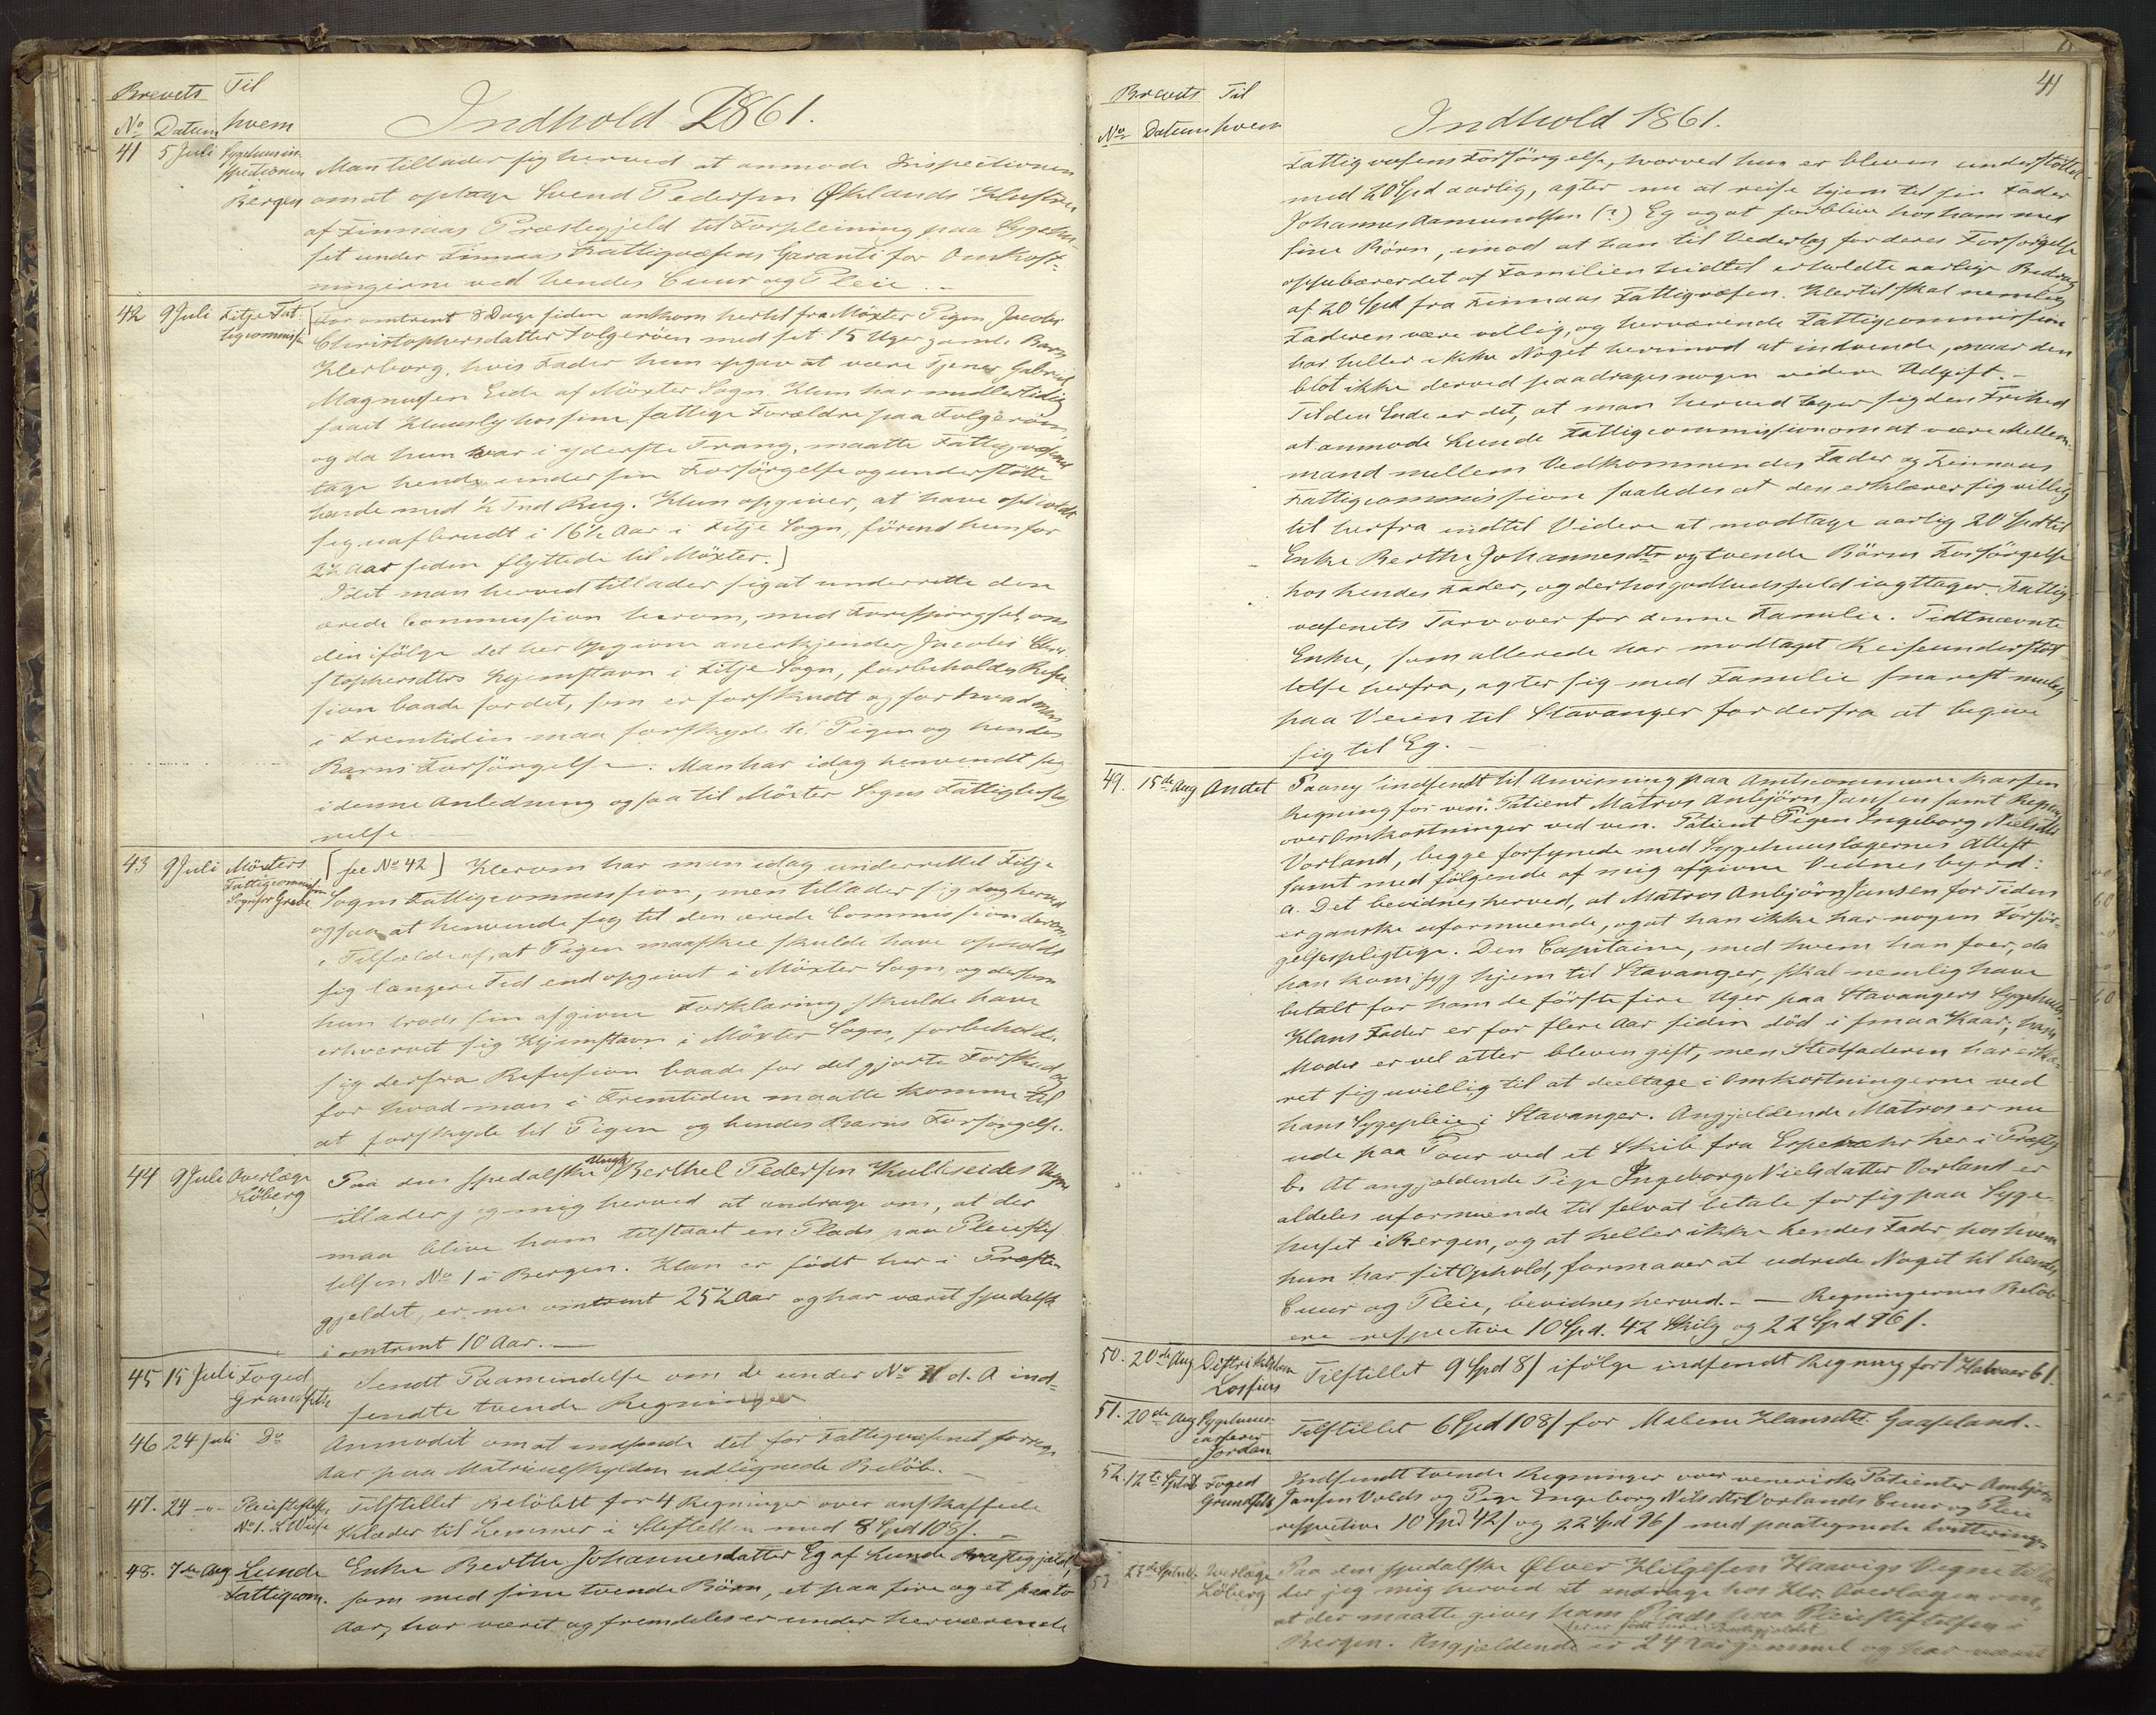 Brevets Til
No Datum hvem
Indhold 1861.
41 5 Juli Sygehusinspectionen i Bergen
Man tillader sig herved at anmode Inspectionen
om at optage Svend Pedersen Øklands Hustru
af Finnaas Præstegjeld til Forpleining paa Sygehu-
set under Finnaas Fattigvæsens Garanti for Omkost-
ningerne ved hendes Cuur og Pleie. -
42 9 Juli Fitje Fat-
tigcommissi
[For omtrent 8 Dage siden ankom hertil fra Möxter Pigen Jacobi
Christophersdatter Folgeröen med sit 15 Uger gamle Barn
Herborg, hvis Fader hun opgav at være Tjener Gabriel
Magnusen Eide af Möxter Sogn. Hun har midlertidig
faaet Huusly hos sine fattige Forældre paa Folgeröen,
og da hun var i yderste Trang, maatte Fattigvæsenet
tage hende under sin Forsörgelse og understötte
hende med ½ Tnd Rug. Hun opgiver, at have opholdt
sig uafbrudt i 16½ Aar i Fitje Sogn, förend hun for
2½ Aar siden flyttede til Möxter.]
Idet man herved tillader sig at underrette den
ærede Commission herom, med Forespörgsel, om
den ifölge det her Opgivne anerkjender Jacobi Chri-
stophersdtrs Hjemstavn i Fitje Sogn, forbeholdes Refu-
sion baade for det, som er forskudt og for hvad man
i Fremtiden maa forskyde til Pigen og hendes
Barns Forsörgelse. Man har idag henvendt sig
i denne Anledning ogsaa til Möxter Sogns Fattigbesty-
relse.
43 9 Juli Möxters
Fattigcommission
[see No 42] Herom har man idag underrettet Fitje
Sogns Fattigcommission, men tillader sig dog herved
ogsaa at henvende sig til den ærede Commission derom,
i Tilfælde af, at Pigen maaskee skulde have opholdt
sig længere Tid end opgivet i Möxter Sogn, og dersom
hun trods sin afgivne Forklaring skulde have
erhvervet sig Hjemstavn i Möxter Sogn, forbeholde
sig derfra Refusion baade for det gjorte Forskud og
for hvad man i Fremtiden maatte komme til
at forskyde til Pigen og hendes Barns Forsörgelse.
44 9 Juli Overlæge
Löberg
Paa den spedalske Ungk. Berthel Pedersen Hulkseides Vegne
tillader jeg mig herved at andrage om, at der
maa blive ham tilstaaet en Plads paa Pleiestif-
telsen No 1 i Bergen. Han er födt her i Præste-
gjeldet, er nu omtrent 25½ Aar og har været spedalsk
i omtrent 10 Aar. —
45 15 Juli Foged
Grundseth
Sendt Paamindelse om de under No 31 d. A ind-
sendte tvende Regninger
46 24 Juli Do
Anmodet om at indsende det for Fattigvæsenet forrige
Aar paa Matrikulskylden udlignede Belöb. —
47. 24 -"- Pleiestiftelsen
No 1. L Wiese
Tilstillet Belöbet for 4 Regninger over anskaffede
Klæder til Lemmer i Stiftelsen med 8 Spd 108 s. —
48. 7de Aug Lunde
Fattigcom.
Enke Berthe Johannesdatter Eg af Lunde Præstegjæld,
som med sine tvende Börn, et paa fire og et paa to
Aar, har været og fremdeles er under herværende
41
Brevets Til
No Datum hvem
Indhold 1861.
Fattigvæsens Forsörgelse, hvorved hun er bleven understöttet
med 20 Spd aarlig, agter nu at reise hjem til sin Fader
Johannes Aamundsen (?) Eg og at forblive hos ham med
sine Börn, imod at han til Vederlag for deres Forsörgelse
oppebærer det af Familien hidtil erholdte aarlige Bidrag
af 20 Spd fra Finnaas Fattigvæsen. Hertil skal nemlig
Faderen være villig, og herværende Fattigcommission
har heller ikke Noget herimod at indvende, naar den
blot ikke derved paadrages nogen videre Udgift. -
Til den Ende er det, at man herved tager sig den Frihed
at anmode Lunde Fattigcommission om at være Mellem-
mand mellem Vedkommendes Fader og Finnaas
Fattigcommission saaledes at den erklærer sig villig
til herfra indtil Videre at modtage aarlig 20 Spd til
Enke Berthe Johannesdtr og tvende Börns Forsörgelse
hos hendes Fader, og derhos godhedsfuld iagttager Fattig-
væsenets Tarv over for denne Familie. Tidtnævnte
Enke, som allerede har modtaget Reiseunderstöt-
telse herfra, agter sig med Familie snarest mulig
paa Veien til Stavanger for derfra at begive
sig til Eg. -
49. 15de Aug Amtet
Paany indsendt til Anvisning paa Amtscommunekassen
Regning for ven. Patient Matros Anbjörn Jansen samt Regning
over Omkostninger ved ven. Patient Pigen Ingeborg Nielsdtr
Vorland, begge forsynede med Sygehuuslægernes Attest
samt med fölgende af mig afgivne Vidnesbyrd:
a. Det bevidnes herved, at Matros Anbjörn Jansen for Tiden
er ganske uformuende, og at han ikke har nogen Forsör-
gelsespligtige. Den Capitaine, med hvem han foer, da
han kom syg hjem til Stavanger, skal nemlig have
betalt for ham de förste fire Uger paa Stavangers Sygehuus.
Hans Fader er for flere Aar siden död i smaa Kaar; hans
Moder er vel atter bleven gift, men Stedfaderen har erklæ-
ret sig uvillig til at deeltage i Omkostningerne ved
hans Sygepleie i Stavanger. Angjeldende Matros er nu
ude paa Tour ved et Skib fra Espevær her i Præstg
b. At angjældende Pige Ingeborg Nielsdatter Vorland er
aldeles uformuende til selv at betale for sig paa Syge-
huset i Bergen, og at heller ikke hendes Fader, hos hvem
hun har sit Ophold, formaaer at udrede Noget til hendes
Cuur og Pleie, bevidnes herved. - — Regningernes Belöb
ere respective 10 Spd. 42 Skilg og 22 Spd 96 s.
50. 20de Aug
Tilstillet 9 Spd 8 s ifölge indsendt Regning for 1 Halvaar 61.
51. 20de Aug Sygehuus-
casserer
Jordan
Tilstillet 6 Spd 108 s for Malene Hansdtr. Gaaseland. -
52. 12te Septb Foged
Grundseth
Indsendt tvende Regninger over veneriske Patienter Anbjörn
Jansen Volds og Pige Ingeborg Nilsdtr Vorlands Cuur og Pleie
respective 10 Spd 42 s og 22 Spd 96 s med paategnede Qvitteringer
53 23de Septembr Overlæge
Löberg
Paa den spedalske Ölver Helgesen Haavigs Vegne tilla-
der jeg mig herved at andrage hos Hr. Overlægen om,
at der maatte gives ham Plads paa Pleiestiftelsen i
her er födt her i Præstegjeldet
Bergen. Angjældende er 24 Aar gammel og har været